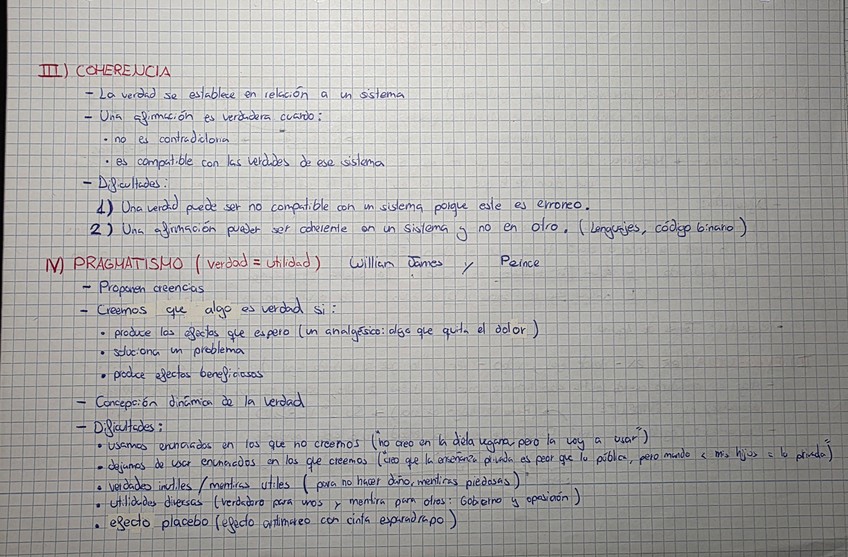 III) COHERENCIA
- La verdad se establece en relación a un sistema
- Una afirmación es verdadera cuando:
• no es contradictoria
• es compatible con las verdades de ese sistema
- Dificultades:
1) Una verdad puede ser no compatible con un sistema porque este es erroneo.
2) Una afirmación pueder ser coherente en un sistema y no en otro. (Lenguajes, código binario)
IV) PRAGMATISMO (verdad = utilidad) Willian James y Peirce
- Proponen creencias
- Creemos que algo es verdad si:
• produce los efectos que espero (un analgésico: algo que quita el dolor)
• soluciona un problema
• produce efectos beneficiosos
- Concepción dinámica de la verdad
- Dificultades:
• usamos enunciados en los que no creemos ("no creo en la dieta vegana, pero la voy a usar")
• dejamos de usar enunciados en los que creemos (creo que la enseñanza privada es peor que la pública, pero mando a mis hijos a la privada)
• verdades inutiles / mentiras utiles (para no hacer daño, mentiras piedosas)
• utilidades diversas (verdadero para unos y mentira para otros: Gobierno y oposición)
• efecto placebo (efecto antimareo con cinta esparadrapo)